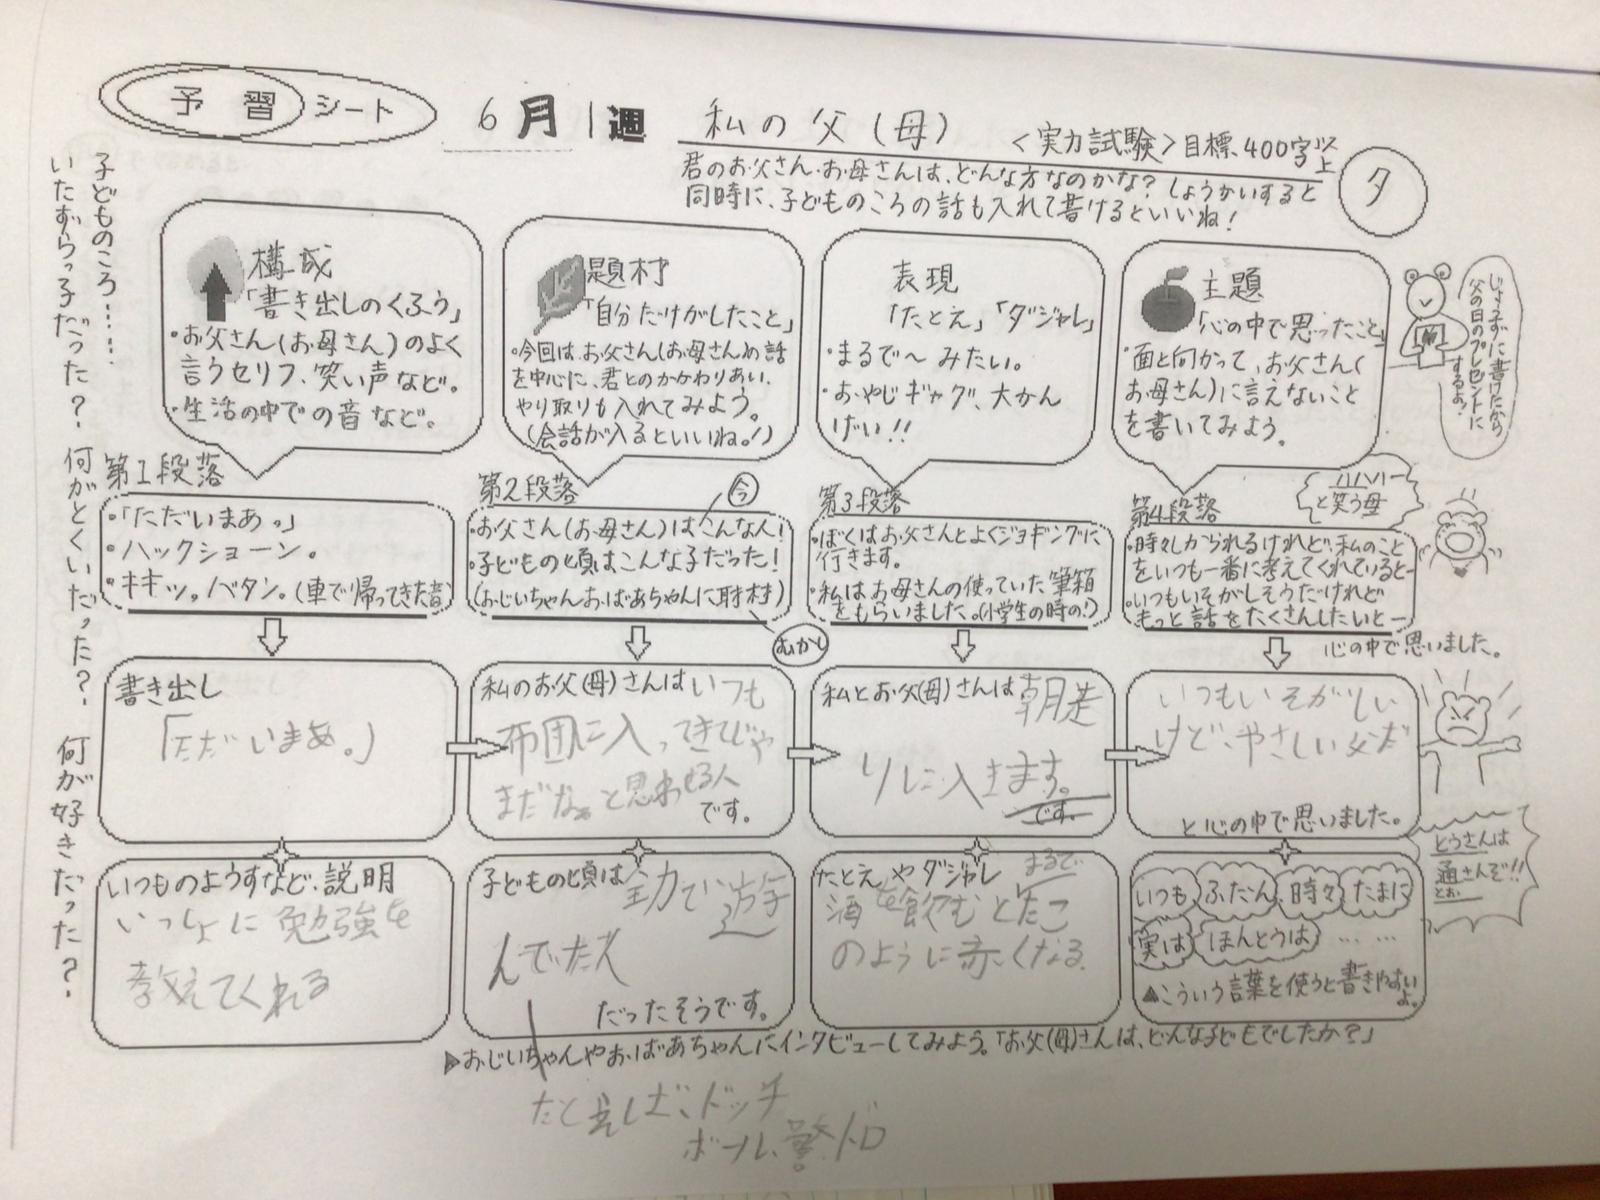 予習シート
6月1週
私の父(母)
<実力試験>目標、400字以上
夕
君のお父さん・お母さんは、どんな方なのかな?しょうかいすると
同時に、子どものころの話も入れて書けるといいね!
子どものころ……
いたずらっ子だった?何がとくいだった?何が好きだった?
構成
「書き出しのくふう」
・お父さん(お母さん)のよく
言うセリフ、笑い声など。
・生活の中での音など。
題材
「自分だけがしたこと」
・今回は、お父さん(お母さん)の話
を中心に、君とのかかわりあい、
やり取りも入れてみよう。
(会話が入るといいね。!)
表現
「たとえ」「ダジャレ」
・まるで〜みたい。
・おやじギャグ、大かん
げい!!
主題
「心の中で思ったこと」
・面と向かって、お父さん(
お母さん)に言えないこと
を書いてみよう。
じょうずに書けたから
父の日のプレゼントに
するよ!
第1段落
・「ただいまあっ」
・ハックショーン。
・キキッ。バタン。(車で帰ってきた音)
第2段落
今
・お父さん(お母さん)はこんな人!
・子どもの頃はこんな子だった!
(おじいちゃんおばあちゃんに取材)
むかし
第3段落
・ぼくはお父さんとよくジョギングに
行きます。
・私はお母さんの使っていた筆箱
をもらいました。(小学生の時の!)
第4段落
・時々しかられるけれど、私のこと
をいつも一番に考えてくれていると―
・いつもいそがしそうだけれど
もっと話をたくさんしたいと―
心の中で思いました。
ハハハハ
と笑う母
書き出し
「ただいまあ。」
私のお父(母)さんはいつも
布団に入ってきてじゃ
まだなぁと思わせる人
です。
私とお父(母)さんは朝走
りに入きます。
です。
いつもいそがしい
けど、やさしい父だ
と心の中で思いました。
とうさんは
通さんぞ!!
とお
いつものようすなど、説明
いっしょに勉強を
教えてくれる
子どもの頃は全力で遊
んでた人
だったそうです。
たとえやダジャレ
まるで
酒を飲むとたこ
のように赤くなる
いつも ふだん 時々 たまに
実は ほんとうは ……
▲こういう言葉を使うと書きやすいよ。
▶おじいちゃんやおばあちゃんにインタビューしてみよう。「お父(母)さんは、どんな子どもでしたか?」
たとえば、ドッチ
ボール、警ドロ